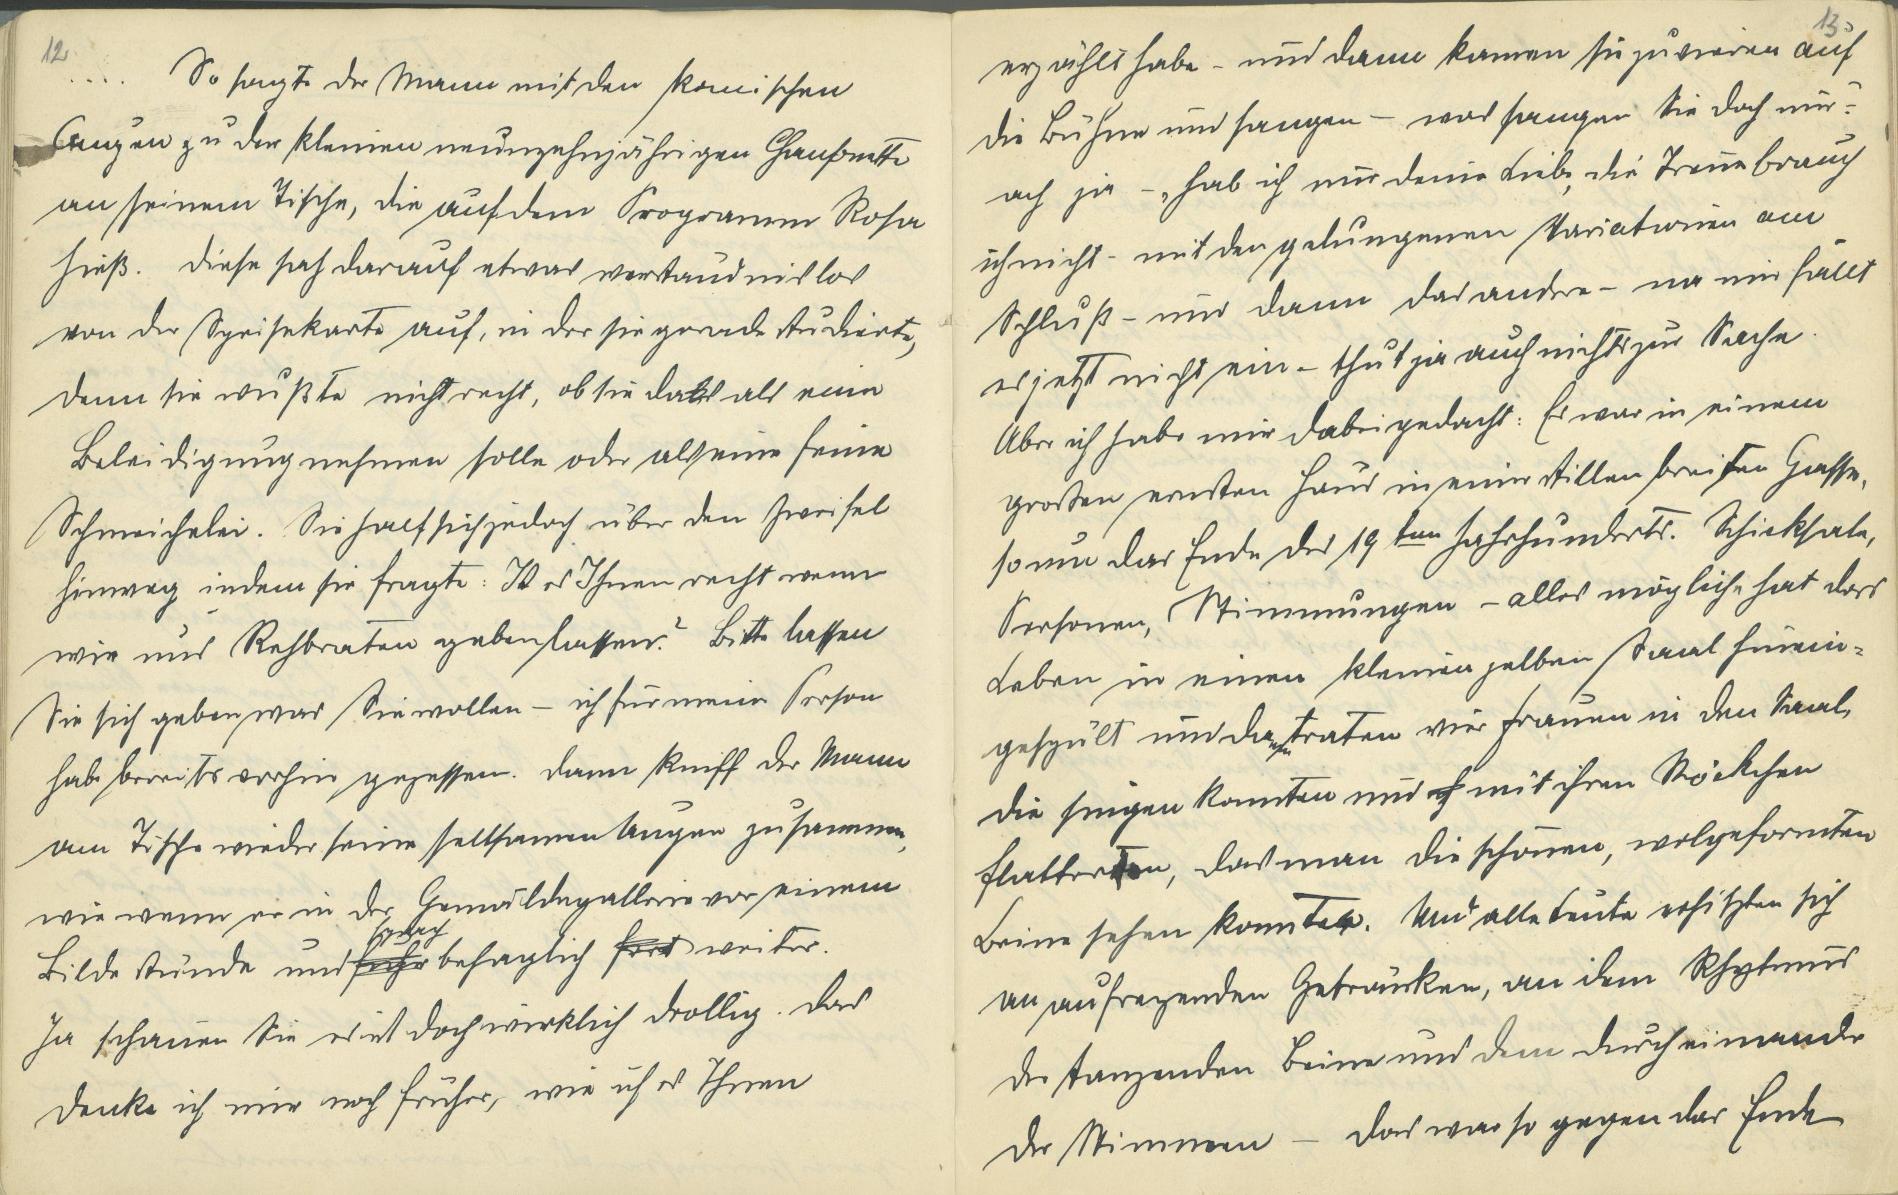 12
.... So sagte der Mann mit den komischen
Augen zu der kleinen neunzehnjährigen Chansonette
an seinem Tische, die auf dem Programm Rosa
hieß. Diese sah darauf etwas verständnislos
von der Speisekarte auf, in der sie gerade studierte,
denn sie wußte nicht recht, ob sie das als eine
Beleidigung nehmen solle oder als eine feine
Schmeichelei. Sie half sich jedoch über den Zweifel
hinweg indem sie fragte: Ist es Ihnen recht wenn
wir uns Rehbraten geben lassen? Bitte lassen
Sie sich geben was Sie wollen – ich für meine Person
habe bereits vorhin gegessen. Dann kniff der Mann
am Tische wieder seine seltsamen Augen zusammen,
wie wenn er in der Gemäldegallerie vor einem
sprach
Bilde stünde und fuhr behaglich fort weiter.
Ja schauen Sie es ist doch wirklich drollig. Das
denke ich mir noch früher, wie ich es Ihnen
13
erzählt habe – und dann kamen sie zu vieren auf
die Bühne und sangen – was sangen Sie doch nur?
ach ja – „hab ich nur deine Liebe, die Treue brauch
ich nicht – mit den gelungenen Variationen am
Schluß – und dann das andere – na mir fällt
es jetzt nicht ein – thut ja auch nichts zur Sache.
Aber ich habe mir dabei gedacht: Es war in einem
großen ernsten Haus in einer stillen breiten Gasse,
so um das Ende des 19ten Jahrhunderts. Schicksale,
Personen, Stimmungen – alles mögliche hat das
Leben in einen kleinen gelben Saal hinein-
gespült und da traten vier Frauen in den Saal,
die singen konnten und mit ihren Röckchen
flatterten, das man die schönen, wolgeformten
Beine sehen konnte. Und alle Leute erhitzten sich
an aufregenden Getränken, an dem Rhytmus
der tanzenden Beine und dem durcheinander
der Stimmen – das war so gegen das Ende